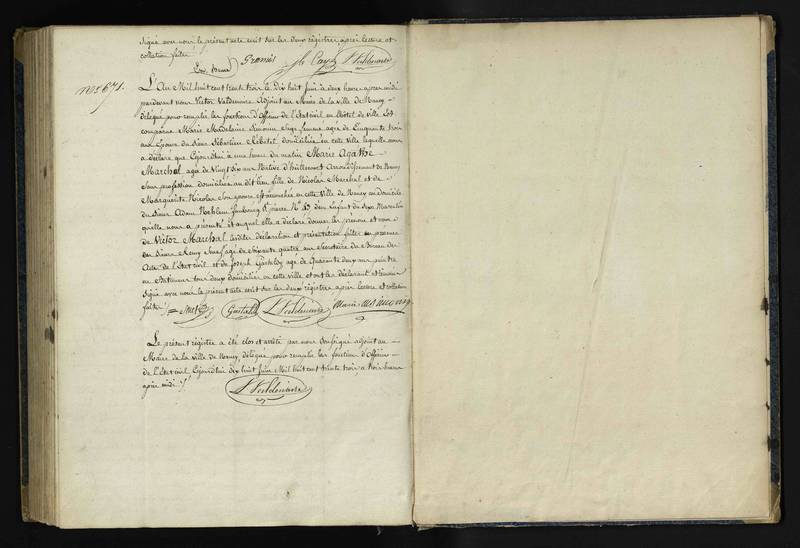 signé avec nous le présent acte écrit sur les deux régistres, après lecture et
collation faites
Granis
No. 671.
L'An Mil huit cent trente trois le Dix huit Juin à deux heures après midi
pardevant nous Victor Valdenaire Adjoint au Maire de la ville de Nancy
délégué pour remplir les fonctions d'Officier de l'état civil en l'hôtel de ville Est
comparue Marie Madelaine Simonin Sage femme agée de Cinquante trois
ans Epouse du Sieur Sébastien domiciliée en cette Ville laquelle nous
a déclaré que Cejourd'hui à une heure du matin Marie Agathe
Marchal agée de Vingt Six ans Native d'hattencourt Arrondissement de Nancy
Sans profession domiciliée au dit lieu fille de Nicolas Marchal et de
Marguerite Nicolas Son épouse est accouchée en cette Ville de Nancy au domicile
du Sieur Adam faubourg St pierre No. 13 d'un Enfant du Sexe Masculin
qu'elle nous a présenté et auquel elle a déclaré donner les prénom et nom
de Victor Marchal lesdites déclaration et présentation faites en présence
des Sieurs Remy agé de Soixante quatre ans Secrétaire du Bureau des
Actes de l'état civil et de Joseph agé de Quarante deux ans peintre
en Batimens tous deux domiciliés en cette ville et ont les déclarant et témoins
Signé avec nous le présent acte écrit sur les deux régistres après lecture et collation
faites
V Valdenaire Marie Simonin
Le présent régistre a été clos et arrêté par nous Soussigné adjoint au
Maire de la Ville de Nancy, délégué pour remplir les fonctions d'Officier
de l'état civil, Cejourd'hui dix huit Juin Mil huit cent trente trois, à trois heures
après midi
V Valdenaire